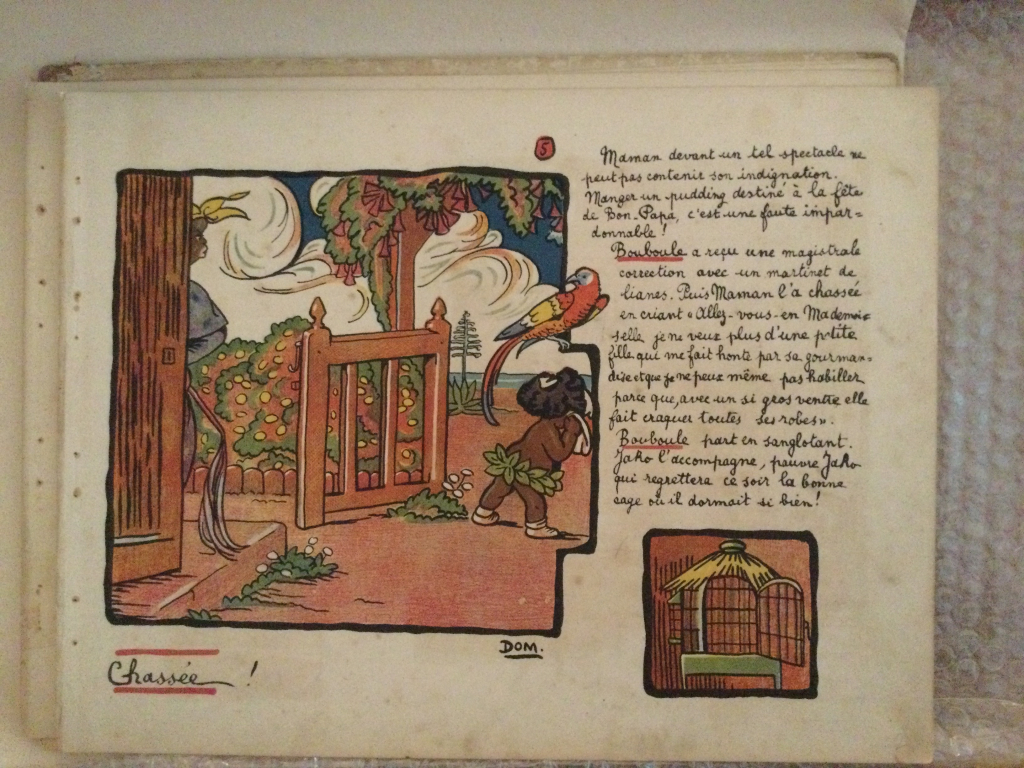 5
Maman devant un tel spectacle ne
peut pas contenir son indignation.
Manger un pudding destiné à la fête
de Bon-Papa, c'est une faute impar=
donnable !
Bouboule a reçu une magistrale
correction avec un martinet de
lianes. Puis Maman l'a chassée
en criant « Allez-vous-en Mademoi=
selle je ne veux plus d'une p'tite
fille qui me fait honte par sa gourman=
dise et que je ne peux même pas habiller
parce que, avec un si gros ventre elle
fait craquer toutes ses robes ».
Bouboule part en sanglotant.
Jako l'accompagne, pauvre Jako
qui regrettera ce soir la bonne
cage où il dormait si bien !
DOM.
Chassée !